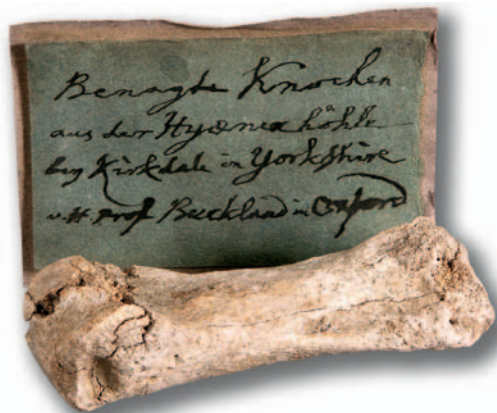 Benagte Knochen
aus der Hyænenhöhle
bey Kirkdale in Yorkshire
v. H. Prof Buckland in Oxford